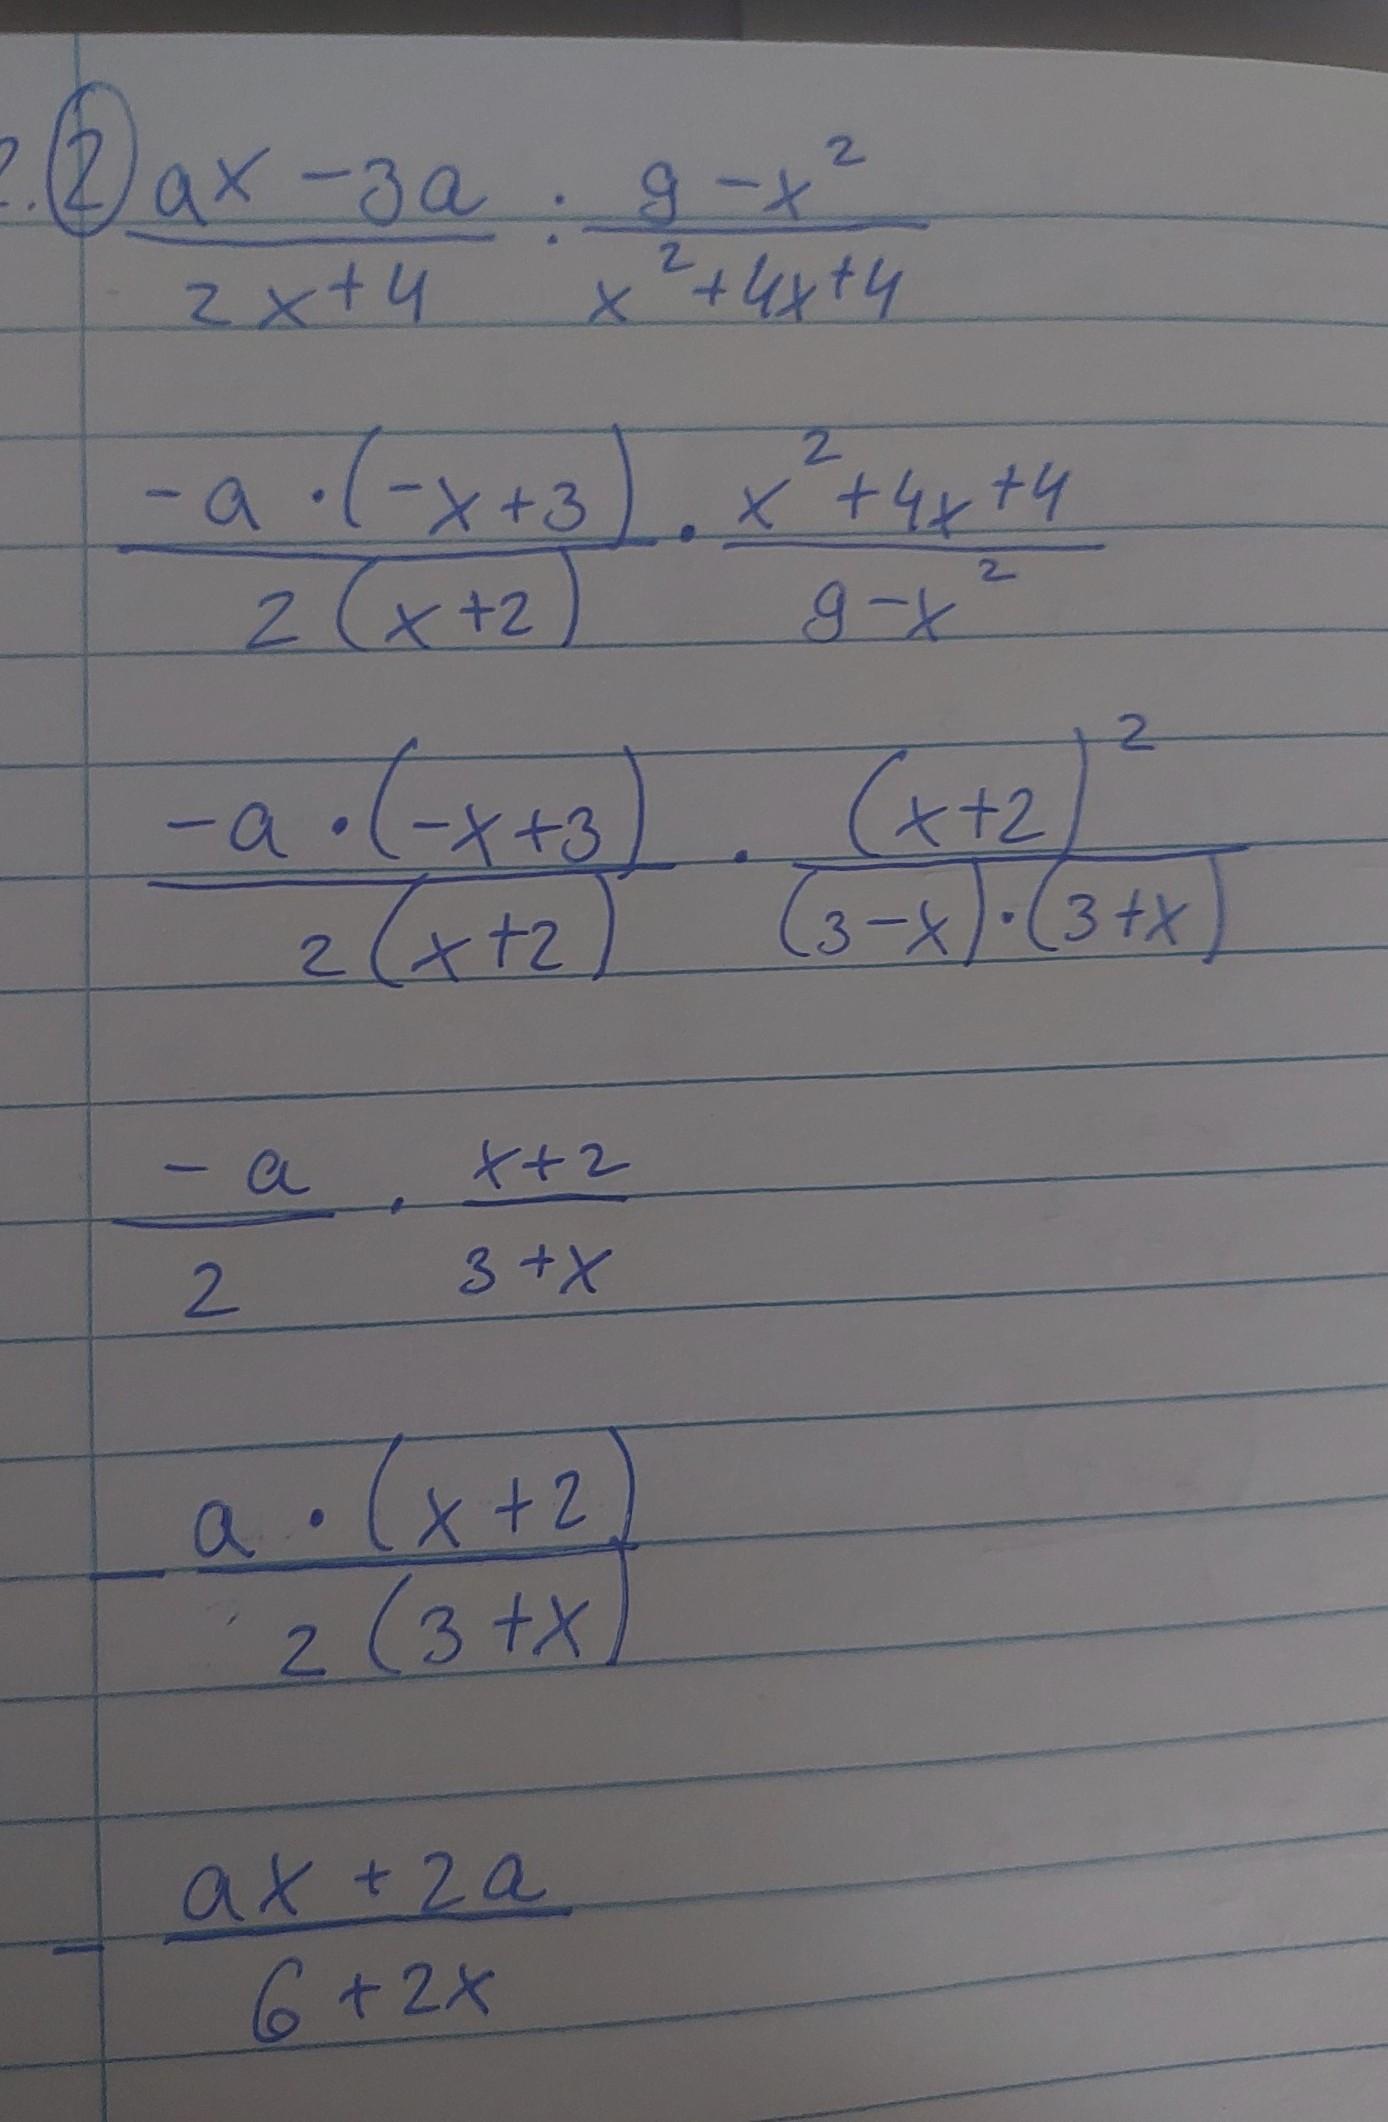 2. ② (ax - 3a)/(2x + 4) : (9 - x²)/(x² + 4x + 4)
(-a · (-x + 3))/(2(x + 2)) · (x² + 4x + 4)/(9 - x²)
(-a · (-x + 3))/(2(x + 2)) · (x + 2)²/((3 - x) · (3 + x))
(-a)/2 · (x + 2)/(3 + x)
- (a · (x + 2))/(2(3 + x))
- (ax + 2a)/(6 + 2x)